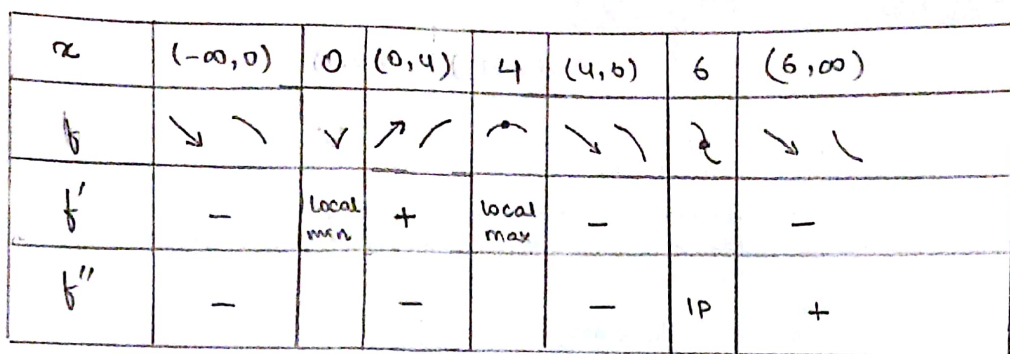 x (-∞,0) 0 (0,4) 4 (4,6) 6 (6,∞)
f ↘ ↗ ↘ ↘
f' − local min + local max − −
f'' − − − IP +